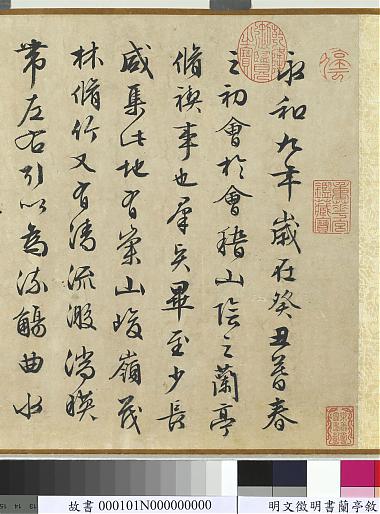 永和九年歲在癸丑暮春
之初會於會稽山陰之蘭亭
脩禊事也羣賢畢至少長
咸集此地有崇山峻嶺茂
林脩竹又有清流激湍映
帶左右引以為流觴曲水
故書 000101N000000000
明文徵明書蘭亭敘